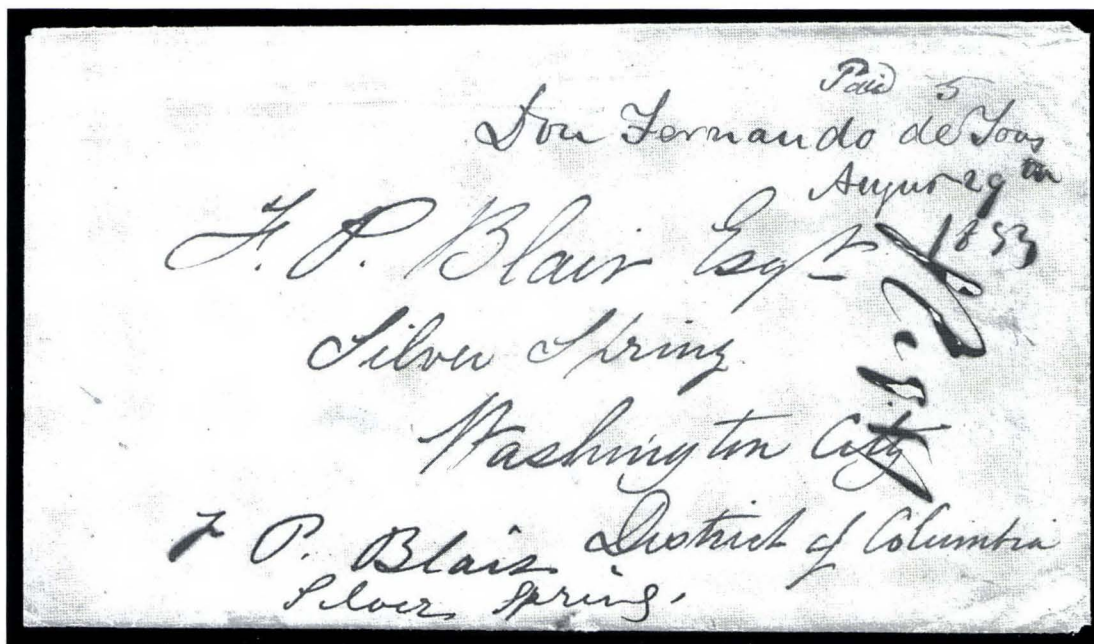 Paid 5
Don Fernando de Taos
Augus 29th
1853
F. P. Blair Esqr
Silver Spring
Washington City
District of Columbia
F P. Blair
Silver Spring.